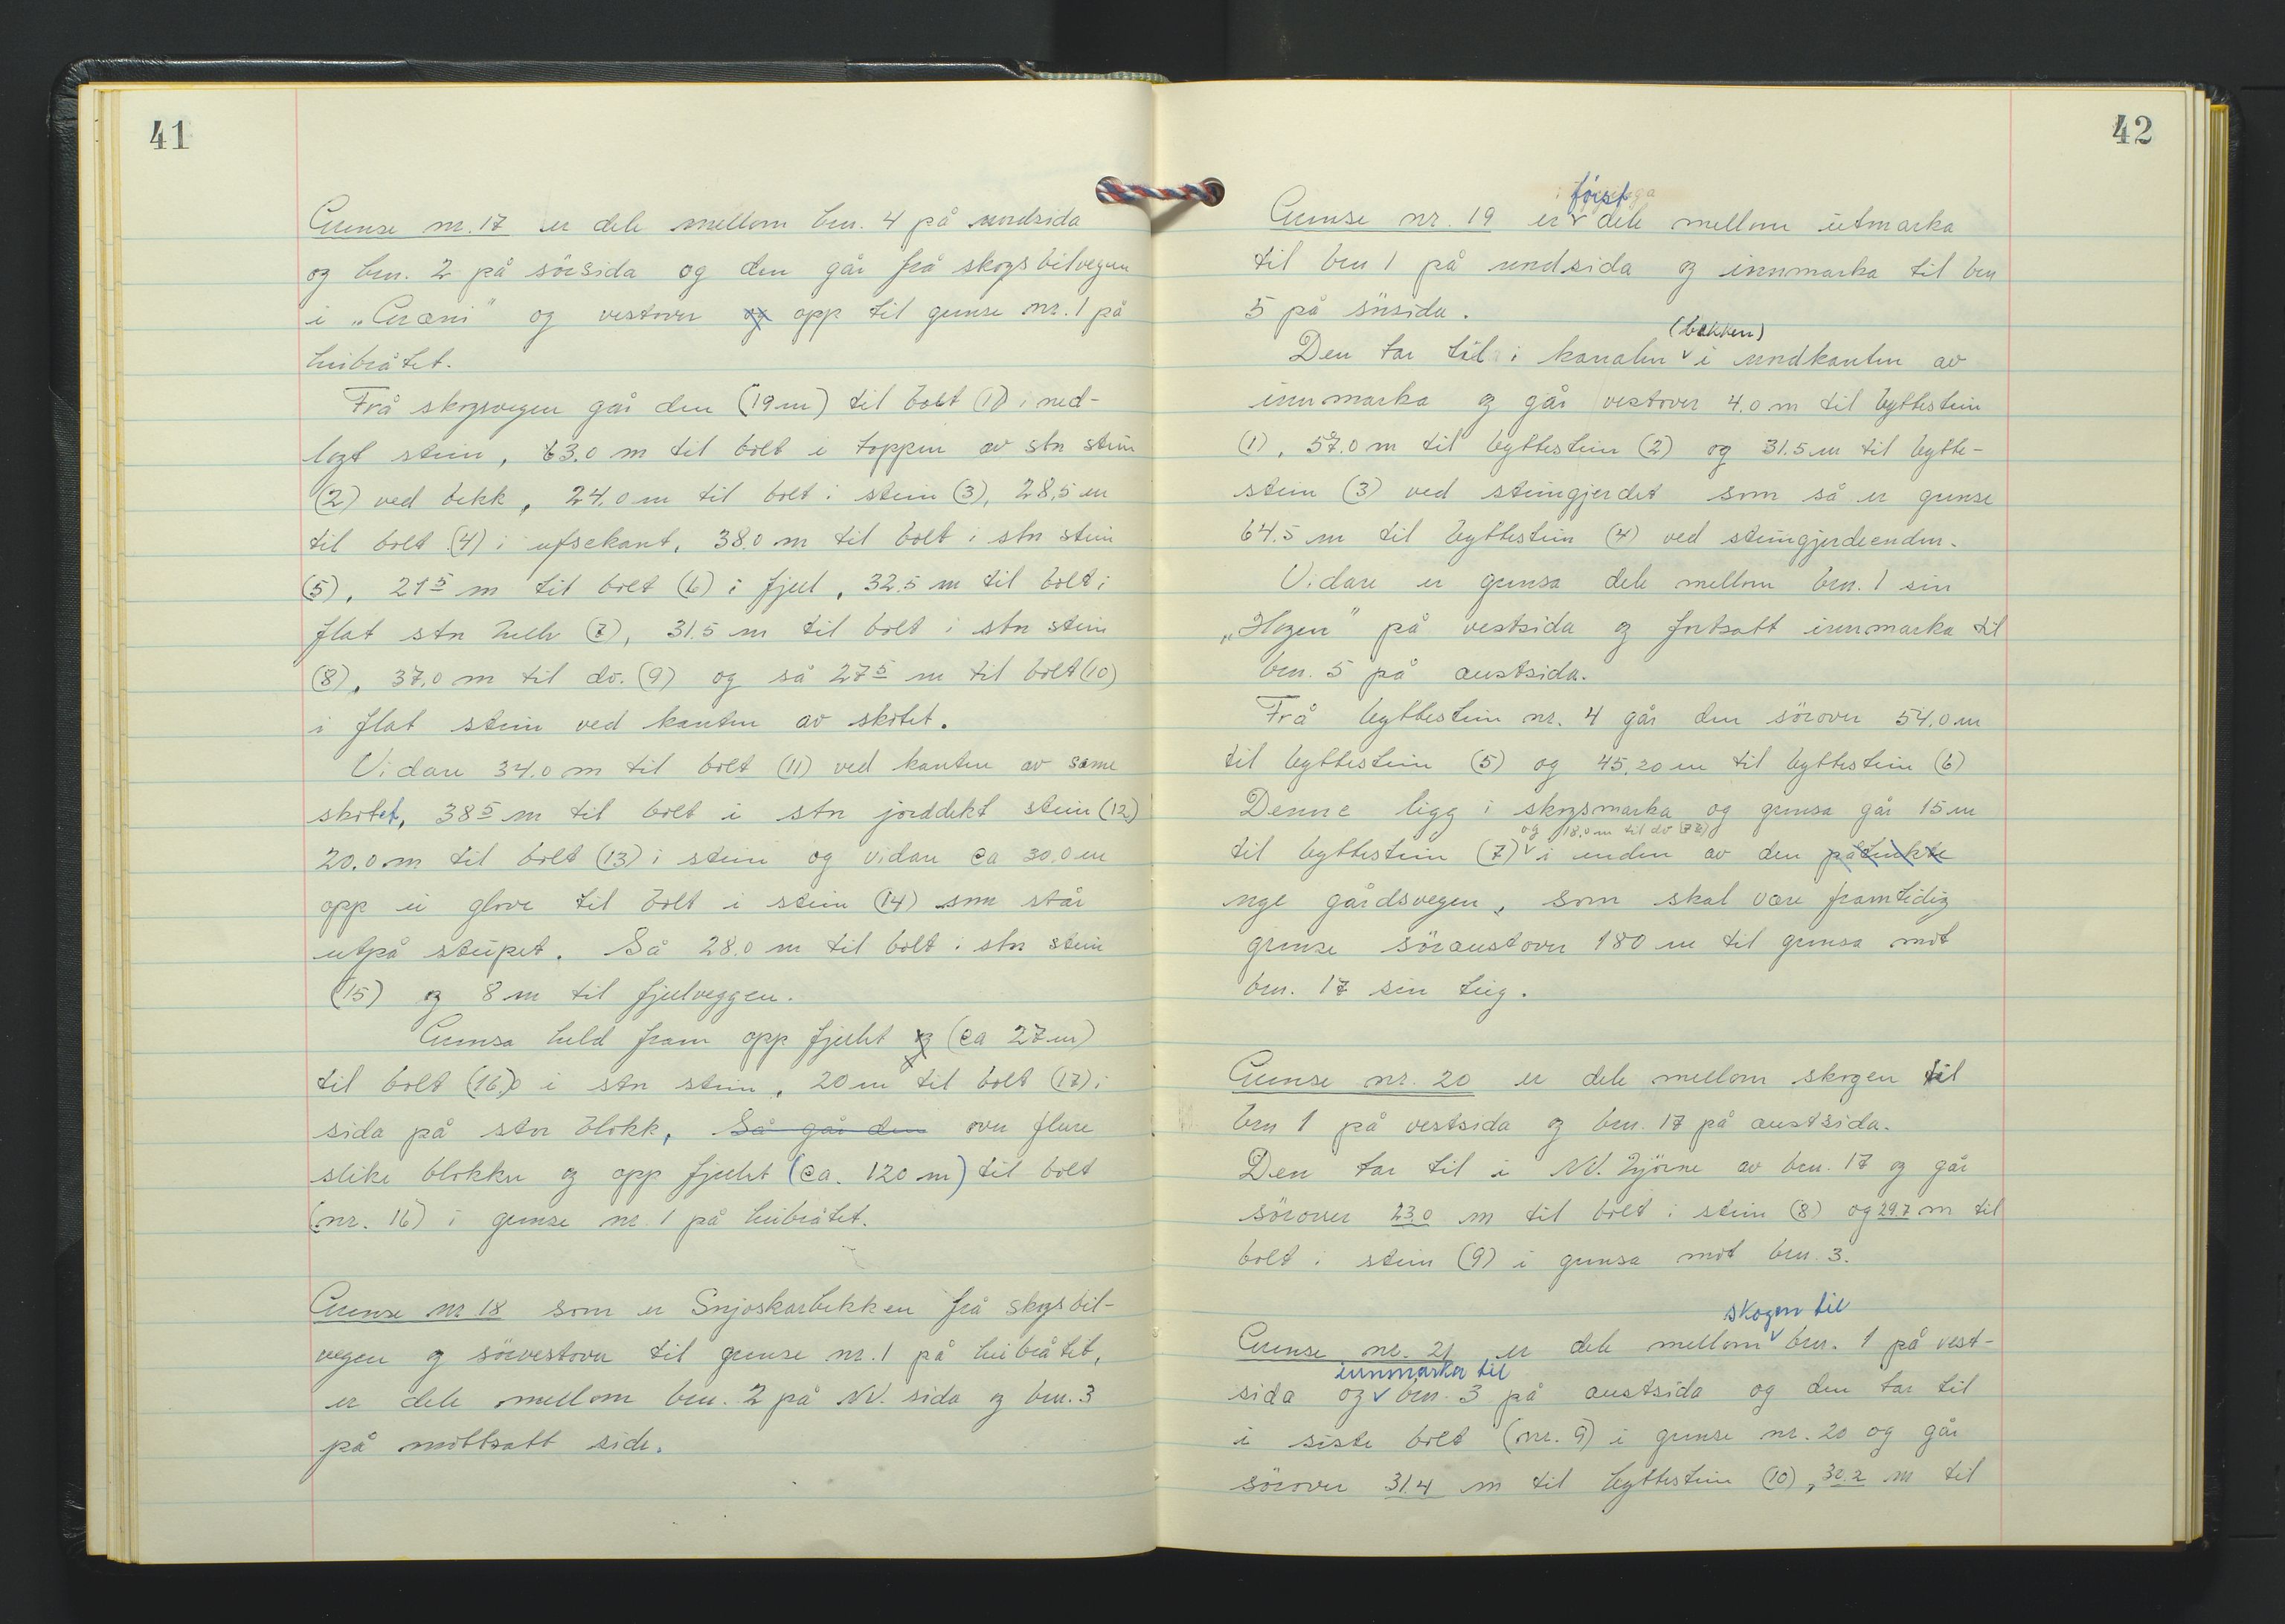 41
Grense nr. 17 er dele mellom bru. 4 på nordsida
og bru. 2 på sörsida og den går frå skogsbilvegen
i „Græni" og vestover og opp til grense nr. 1 på
heibråtet.
Frå skogsvegen går den (19 m) til bolt (1) i ned-
lagt stein, 63.0 m til bolt i toppen av stor stein
(2) ved bekk, 24.0 m til bolt i stein (3), 28,5 m
til bolt (4) i ufsekant, 38.0 m til bolt i stor stein
(5), 21 5 m til bolt (6) i fjell, 32.5 m til bolt i
flat stor helle (7), 31.5 m til bolt i stor stein
(8), 37.0 m til do. (9) og så 27 5 m til bolt (10)
i flat stein ved kanten av skotet.
Vidare 34.0 m til bolt (11) ved kanten av same
skotet, 38 5 m til bolt i stor jorddekt stein (12)
20.0 m til bolt (13) i stein og vidare ca 30.0 m
opp ei glove til bolt i stein (14) som står
utpå stupet. Så 28.0 m til bolt i stor stein
(15) og 8 m til fjellveggen.
Grensa held fram opp fjellet og (ca 27 m)
til bolt (16) i stor stein, 20 m til bolt (17) i
sida på stor blokk, Så går den over fleire
slike blokker og opp fjellet (ca. 120 m) til bolt
(nr. 16) i grense nr. 1 på heibråtet.
Grense nr. 18 som er Snjoskarbekken frå skogsbil-
vegen og sörvestover til grense nr. 1 på heibråtet,
er dele mellom bru. 2 på NV. sida og bru. 3
på motsatt side.
42
först
Grense nr. 19 er dele mellom utmarka
til bru 1 på nordsida og innmarka til bru
5 på sörsida.
(bekken)
Den tar til i kanalen i nordkanten av
innmarka og går vestover 4.0 m til byttestein
(1), 57.0 m til byttestein (2) og 31.5 m til bytte-
stein (3) ved steingjerdet som så er grense
64.5 m til byttestein (4) ved steingjerdeenden.
Vidare er grensa dele mellom bru. 1 sin
„Hagen" på vestsida og fortsatt innmarka til
bru. 5 på austsida.
Frå byttestein nr. 4 går den sörover 54.0 m
til byttestein (5) og 45.20 m til byttestein (6)
Denne ligg i skogsmarka og grensa går 15 m
og 18.0 m til do
til byttestein (7) i enden av den påtenkte
nye gårdsvegen, som skal være framtidig
grense söraustover 180 m til grensa mot
bru. 17 sin teig.
Grense nr. 20 er dele mellom skogen til
bru 1 på vestsida og bru. 17 på austsida.
Den tar til i NV. hjörne av bru. 17 og går
sörover 23.0 m til bolt i stein (8) og 29.7 m til
bolt i stein (9) i grensa mot bru. 3.
skogen til
Grense nr. 21 er dele mellom bru. 1 på vest-
innmarka til
sida og bru. 3 på austsida og den tar til
i siste bolt (nr. 9) i grense nr. 20 og går
sörover 31.4 m til byttestein (10), 32.2 m til